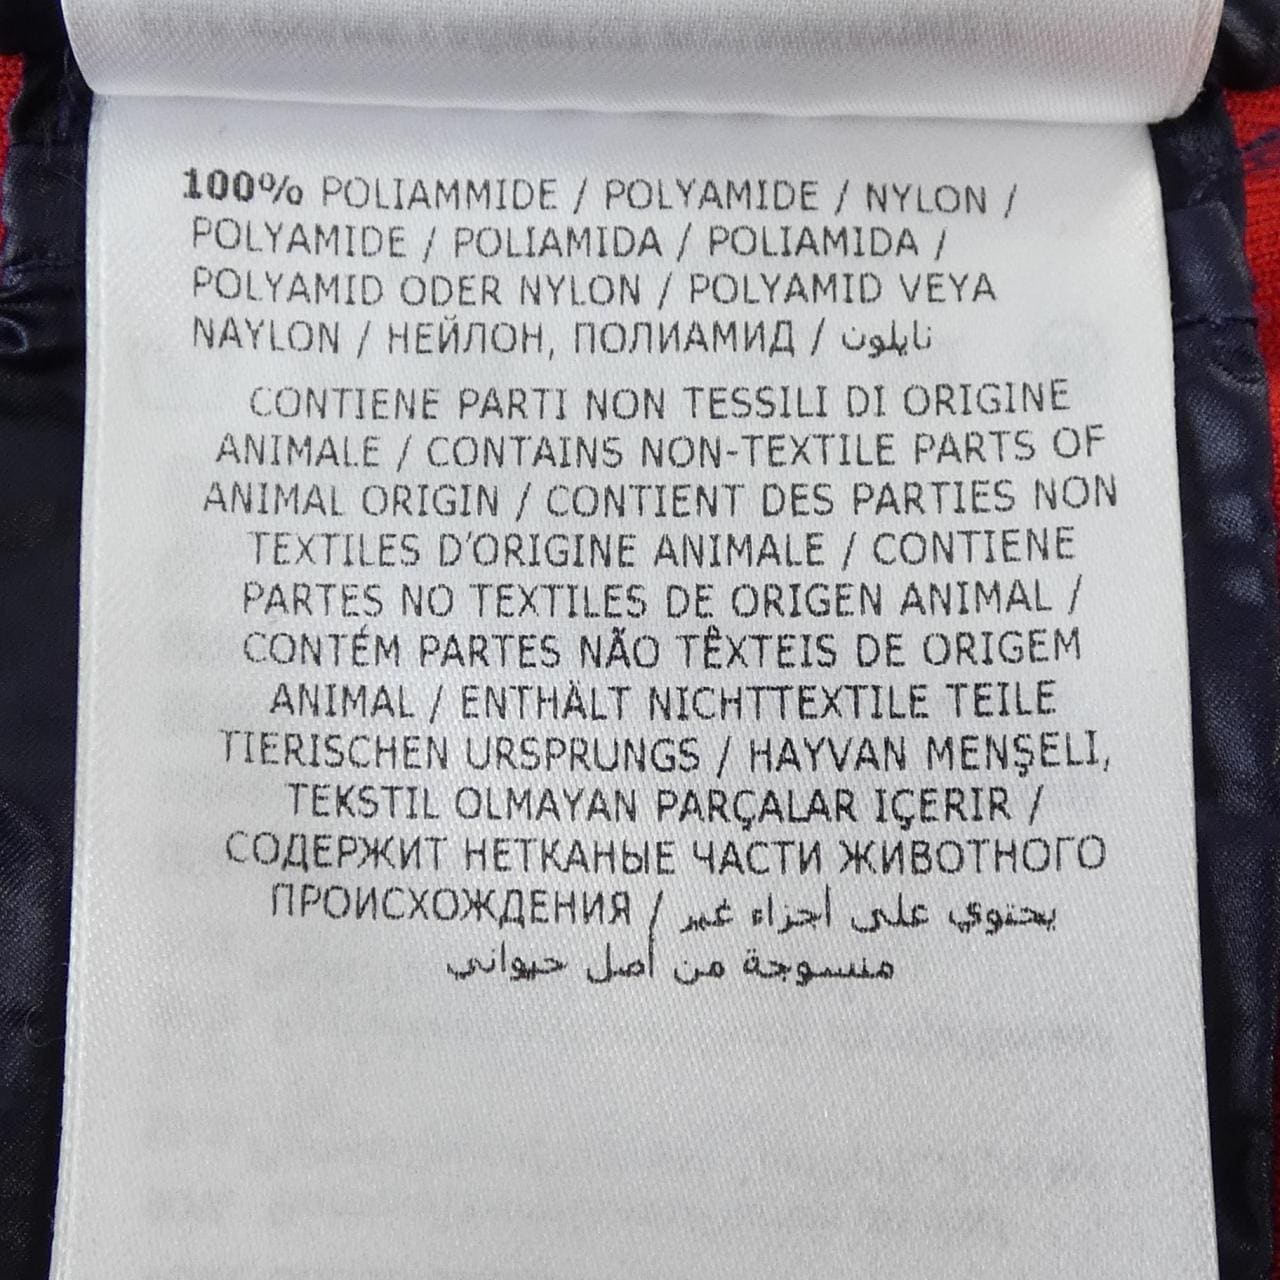 100% POLIAMMIDE / POLYAMIDE / NYLON /
POLYAMIDE / POLIAMIDA / POLIAMIDA /
POLYAMID ODER NYLON / POLYAMID VEYA
NAYLON / НЕЙЛОН, ПОЛИАМИД / نايلون
CONTIENE PARTI NON TESSILI DI ORIGINE
ANIMALE / CONTAINS NON-TEXTILE PARTS OF
ANIMAL ORIGIN / CONTIENT DES PARTIES NON
TEXTILES D'ORIGINE ANIMALE / CONTIENE
PARTES NO TEXTILES DE ORIGEN ANIMAL /
CONTÉM PARTES NÃO TÊXTEIS DE ORIGEM
ANIMAL / ENTHÄLT NICHTTEXTILE TEILE
TIERISCHEN URSPRUNGS / HAYVAN MENŞELI,
TEKSTIL OLMAYAN PARÇALAR IÇERIR /
СОДЕРЖИТ НЕТКАНЫЕ ЧАСТИ ЖИВОТНОГО
ПРОИСХОЖДЕНИЯ / يحتوي على أجزاء غير
منسوجة من أصل حيواني